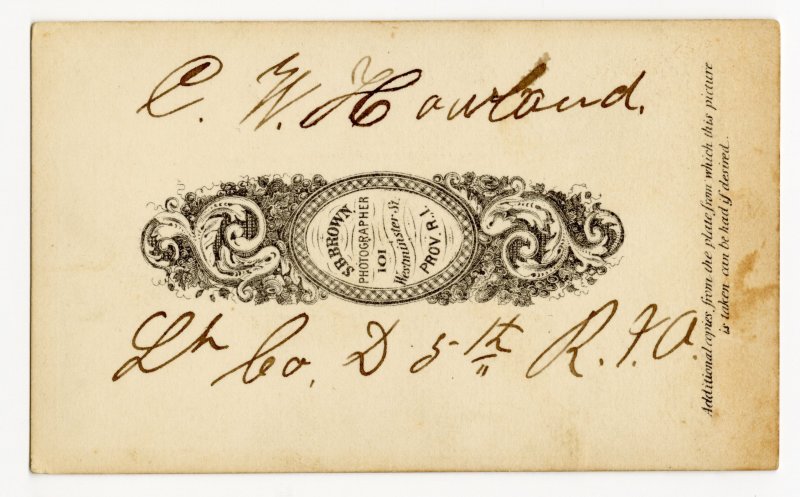 C. W. Howland.
S.B. BROWN
PHOTOGRAPHER
101
Westminster St.
PROV. R.I.
Lt Co. D 5th R. I. A.
Additional copies from the plate from which this picture
is taken can be had if desired.